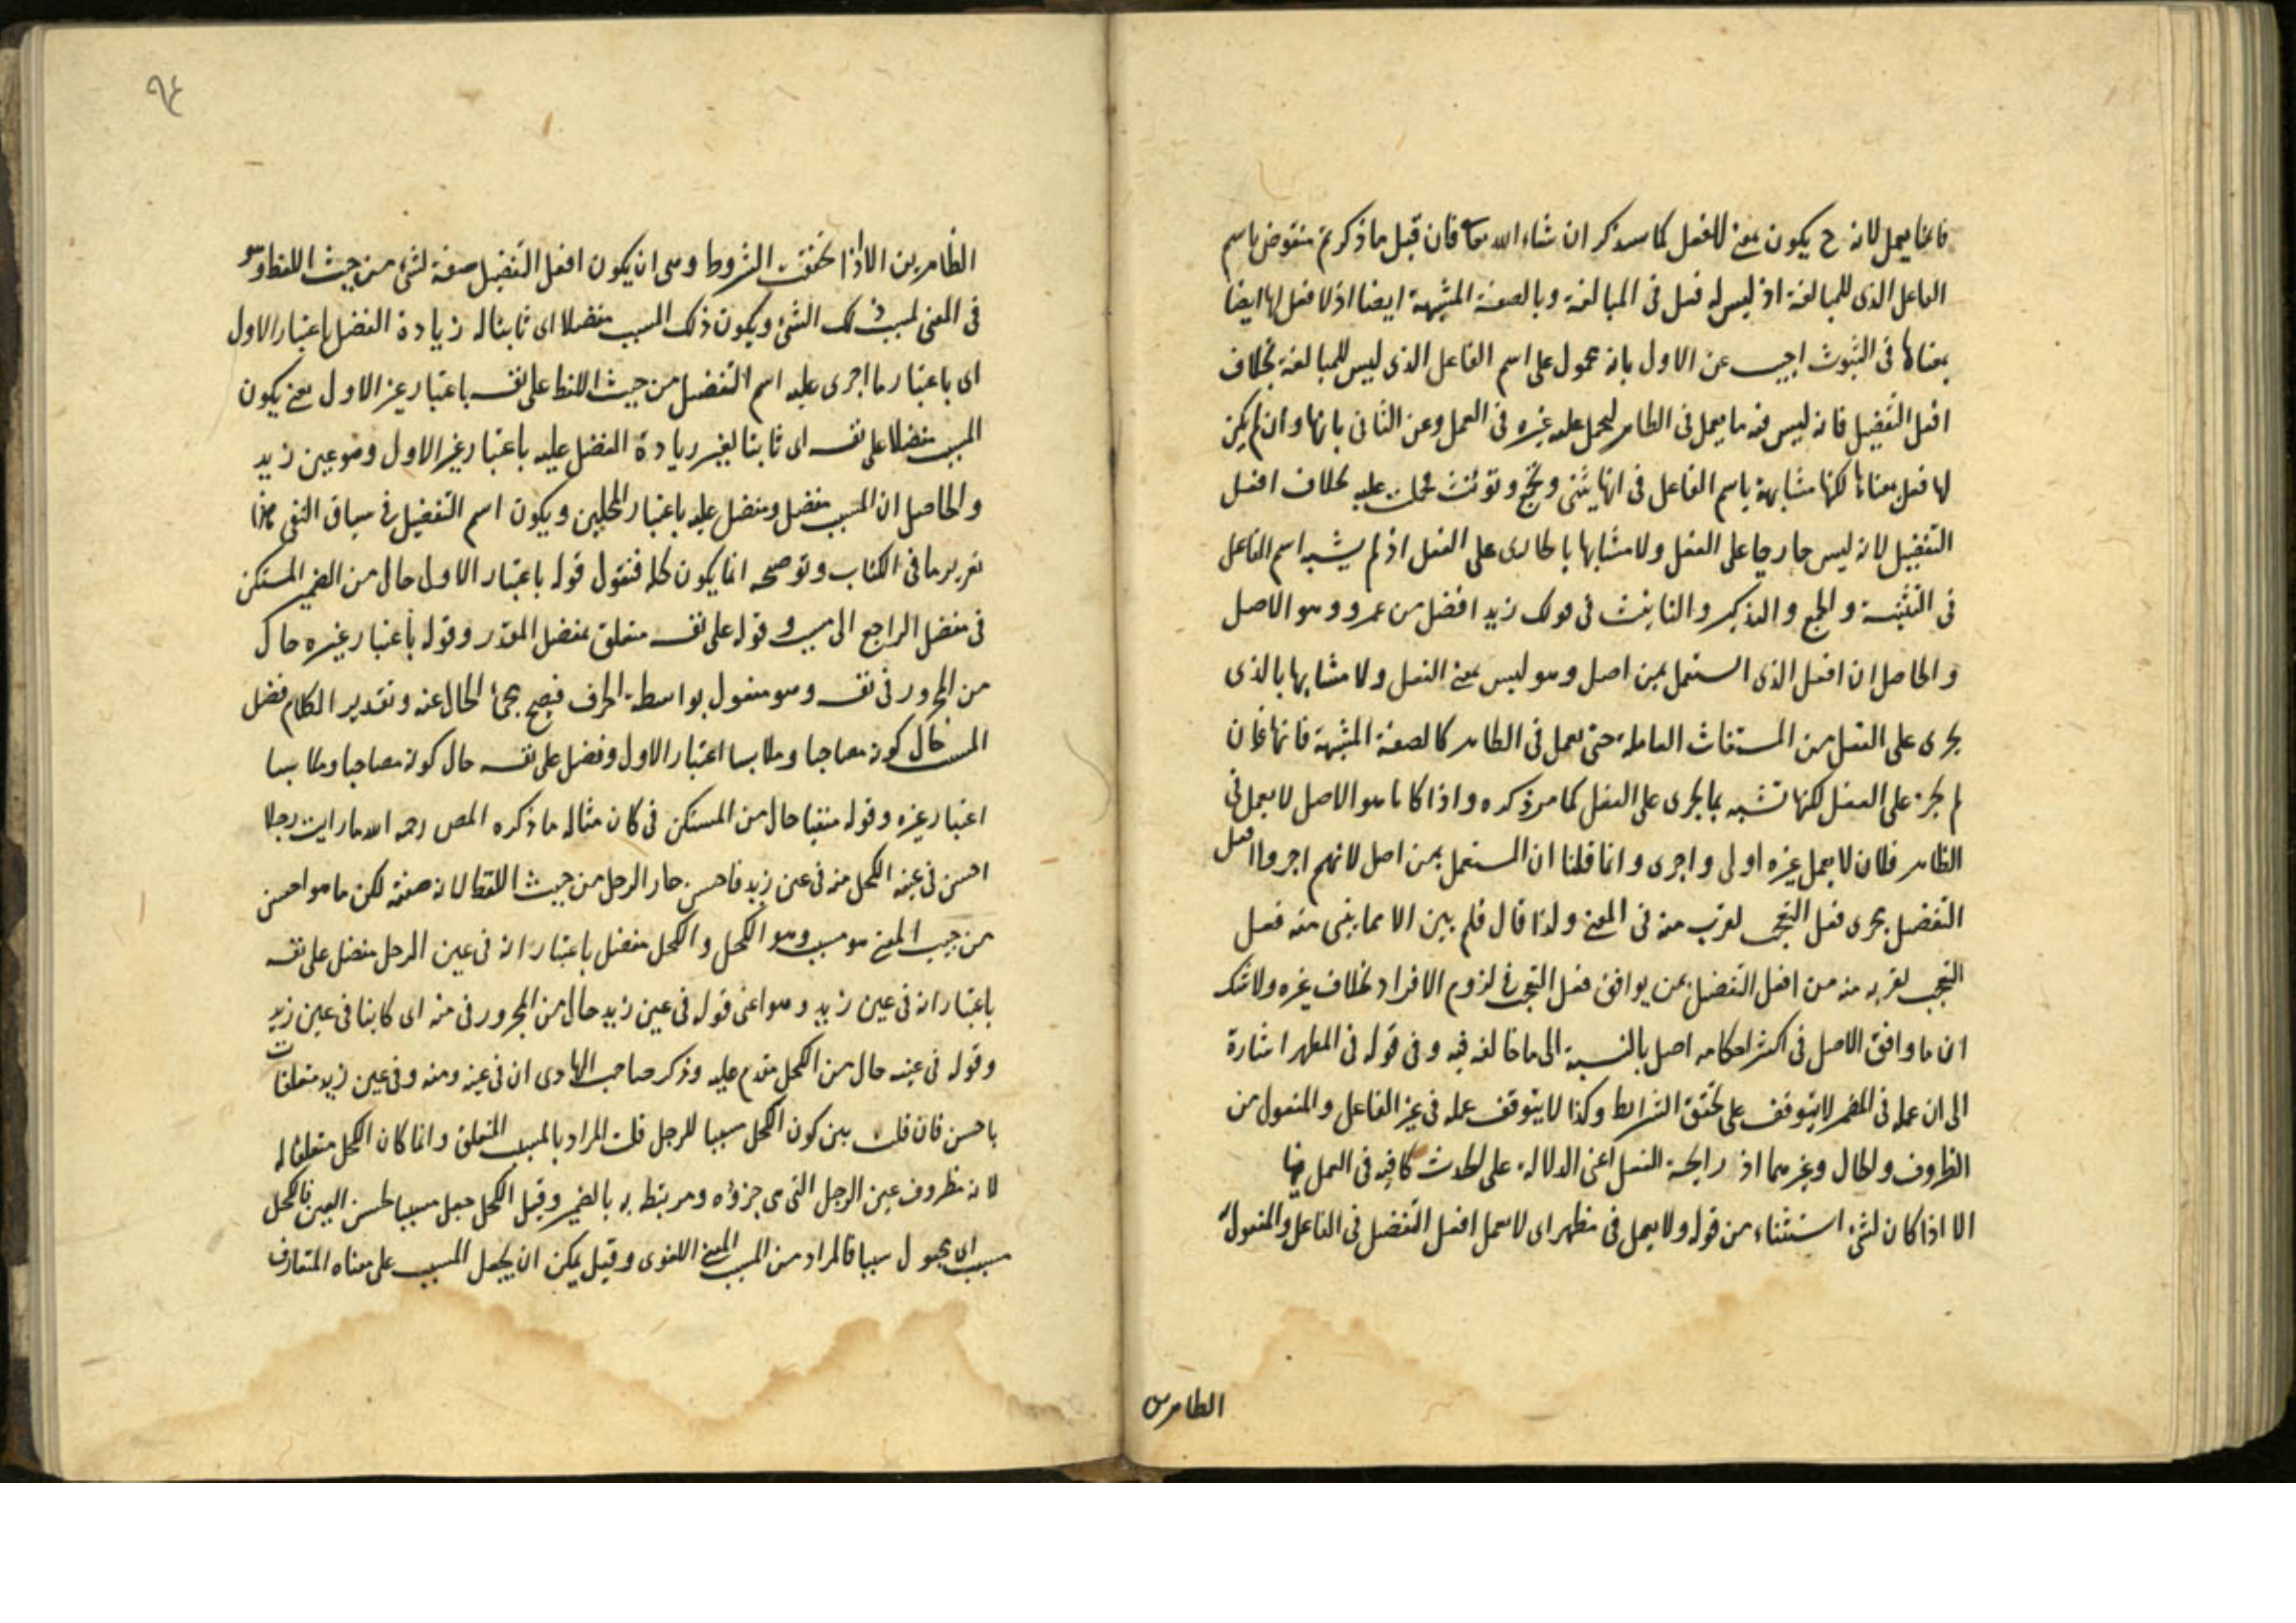 فانما يعمل لانه ح يكون بمعنى الفعل كما سيذكر ان شاء الله تعا فان قيل ما ذكرتم منقوض باسم
الفاعل الذى للمبالغة اذ ليس له فعل فى المبالغة وبالصفة المشبهة ايضا اذ لا فعل لها ايضا
بمعناها فى الثبوت اجيب عن الاول بانه محمول على اسم الفاعل الذى ليس للمبالغة بخلاف
افعل التفضيل فانه ليس منه ما يعمل فى الظاهر ليحمل عليه غيره فى العمل وعن الثانى بانها وان لم يكن
لها فعل بمعناها لكنها مشابهة باسم الفاعل فى انها يثنى ويجمع وتؤنث فحملت عليه بخلاف افعل
التفضيل لانه ليس جاريا على الفعل ولا مشابها بالجارى على الفعل اذ لم يشبه اسم الفاعل
فى التثنية والجمع والتذكير والتانيث فى قولك زيد افضل من عمرو وهو الاصل
والحاصل ان افعل الذى استعمل بمن اصل وهو ليس بمعنى الفعل ولا مشابها بالذى
يجرى على الفعل من المشتقات العاملة حتى يعمل فى الظاهر كالصفة المشبهة فانها وان
لم يجر على الفعل لكنها تشبه بما يجرى على الفعل كما مر ذكره واذا كان ما هو الاصل لا يعمل فى
الظاهر فلان لا يعمل غيره اولى واجرى وانما قلنا ان المستعمل بمن اصل لانهم اجروا افعل
التفضيل مجرى فعل التعجب لقربه منه فى المعنى ولذا قال فلم يبن الا مما يبنى منه فعل
التعجب لقربه منه من افعل التفضيل بمن يوافق فعل التعجب فى لزوم الافراد بخلاف غيره ولا شك
ان ما وافق الاصل فى اكثر احكامه اصل بالنسبة الى ما خالفه فيه وفى قوله فى المظهر اشارة
الى ان عمله فى المضمر لا يتوقف على تحقق الشرايط وكذا لا يتوقف عمله فى غير الفاعل والمفعول من
الظروف والحال وغيرهما اذ رايحة الفعل اعنى الدلالة على الحدث كافية فى العمل فيها
الا اذا كان لشئ استثناء من قوله ولا يعمل فى مظهر اى لا يعمل افعل التفضيل فى الفاعل والمفعول
الظاهرين
٩٤
الظاهرين الا اذا تحققت الشروط وهى ان يكون افعل التفضيل صفة لشئ من حيث اللفظ وهو
فى المعنى لمسبب ذلك الشئ ويكون ذلك المسبب مفضلا اى ثابتا له زيادة الفضل باعتبار الاول
اى باعتبار ما اجرى عليه اسم التفضيل من حيث اللفظ على نفسه باعتبار غير الاول بمعنى يكون
المسبب مفضلا على نفسه اى ثابتا لغير زيادة الفضل عليه باعتبار غير الاول وهو عين زيد
والحاصل ان المسبب مفضل ومفضل عليه باعتبار المحلين ويكون اسم التفضيل فى سياق النفى هذا
تقرير ما فى الكتاب وتوضيحه انما يكون كله فنقول قوله باعتبار الاول حال من الضمير المستكن
فى مفضل الراجع الى مسبب وقوله على نفسه متعلق بمفضل المقدر وقوله باعتبار غيره حال
من المجرور فى نفسه وهو مفعول بواسطة الحرف فيصح مجئ الحال عنه وتقدير الكلام فضل
المسبب حال كونه مصاحبا وملابسا اعتبار الاول وفضل على نفسه حال كونه مصاحبا وملابسا
اعتبار غيره وقوله منفيا حال من المستكن فى كان مثاله ما ذكره المص رحمه الله ما رايت رجلا
احسن فى عينه الكحل منه فى عين زيد فاحسن جار الرجل من حيث اللفظ لانه صفته لكن ما هو احسن
من حيث المعنى هو مسبب وهو الكحل والكحل مفضل باعتبار انه فى عين الرجل مفضل على نفسه
باعتبار انه فى عين زيد وهو اعنى قوله فى عين زيد حال من المجرور فى منه اى كاينا فى عين زيد
وقوله فى عينه حال من الكحل مقدم عليه وذكر صاحب الهادى ان فى عينه ومنه وفى عين زيد متعلقات
باحسن فان قلت بين كون الكحل مسببا للرجل قلت المراد بالمسبب المتعلق وانما كان الكحل متعلقا له
لانه مظروف عين الرجل التى هى جزؤه ومرتبط به بالضمير وقيل الكحل جعل مسببا لحسن العين فالكحل
مسبب اى مجعول سببا فالمراد من المسبب المعنى اللغوى وقيل يمكن ان يجعل المسبب على معناه المتعارف